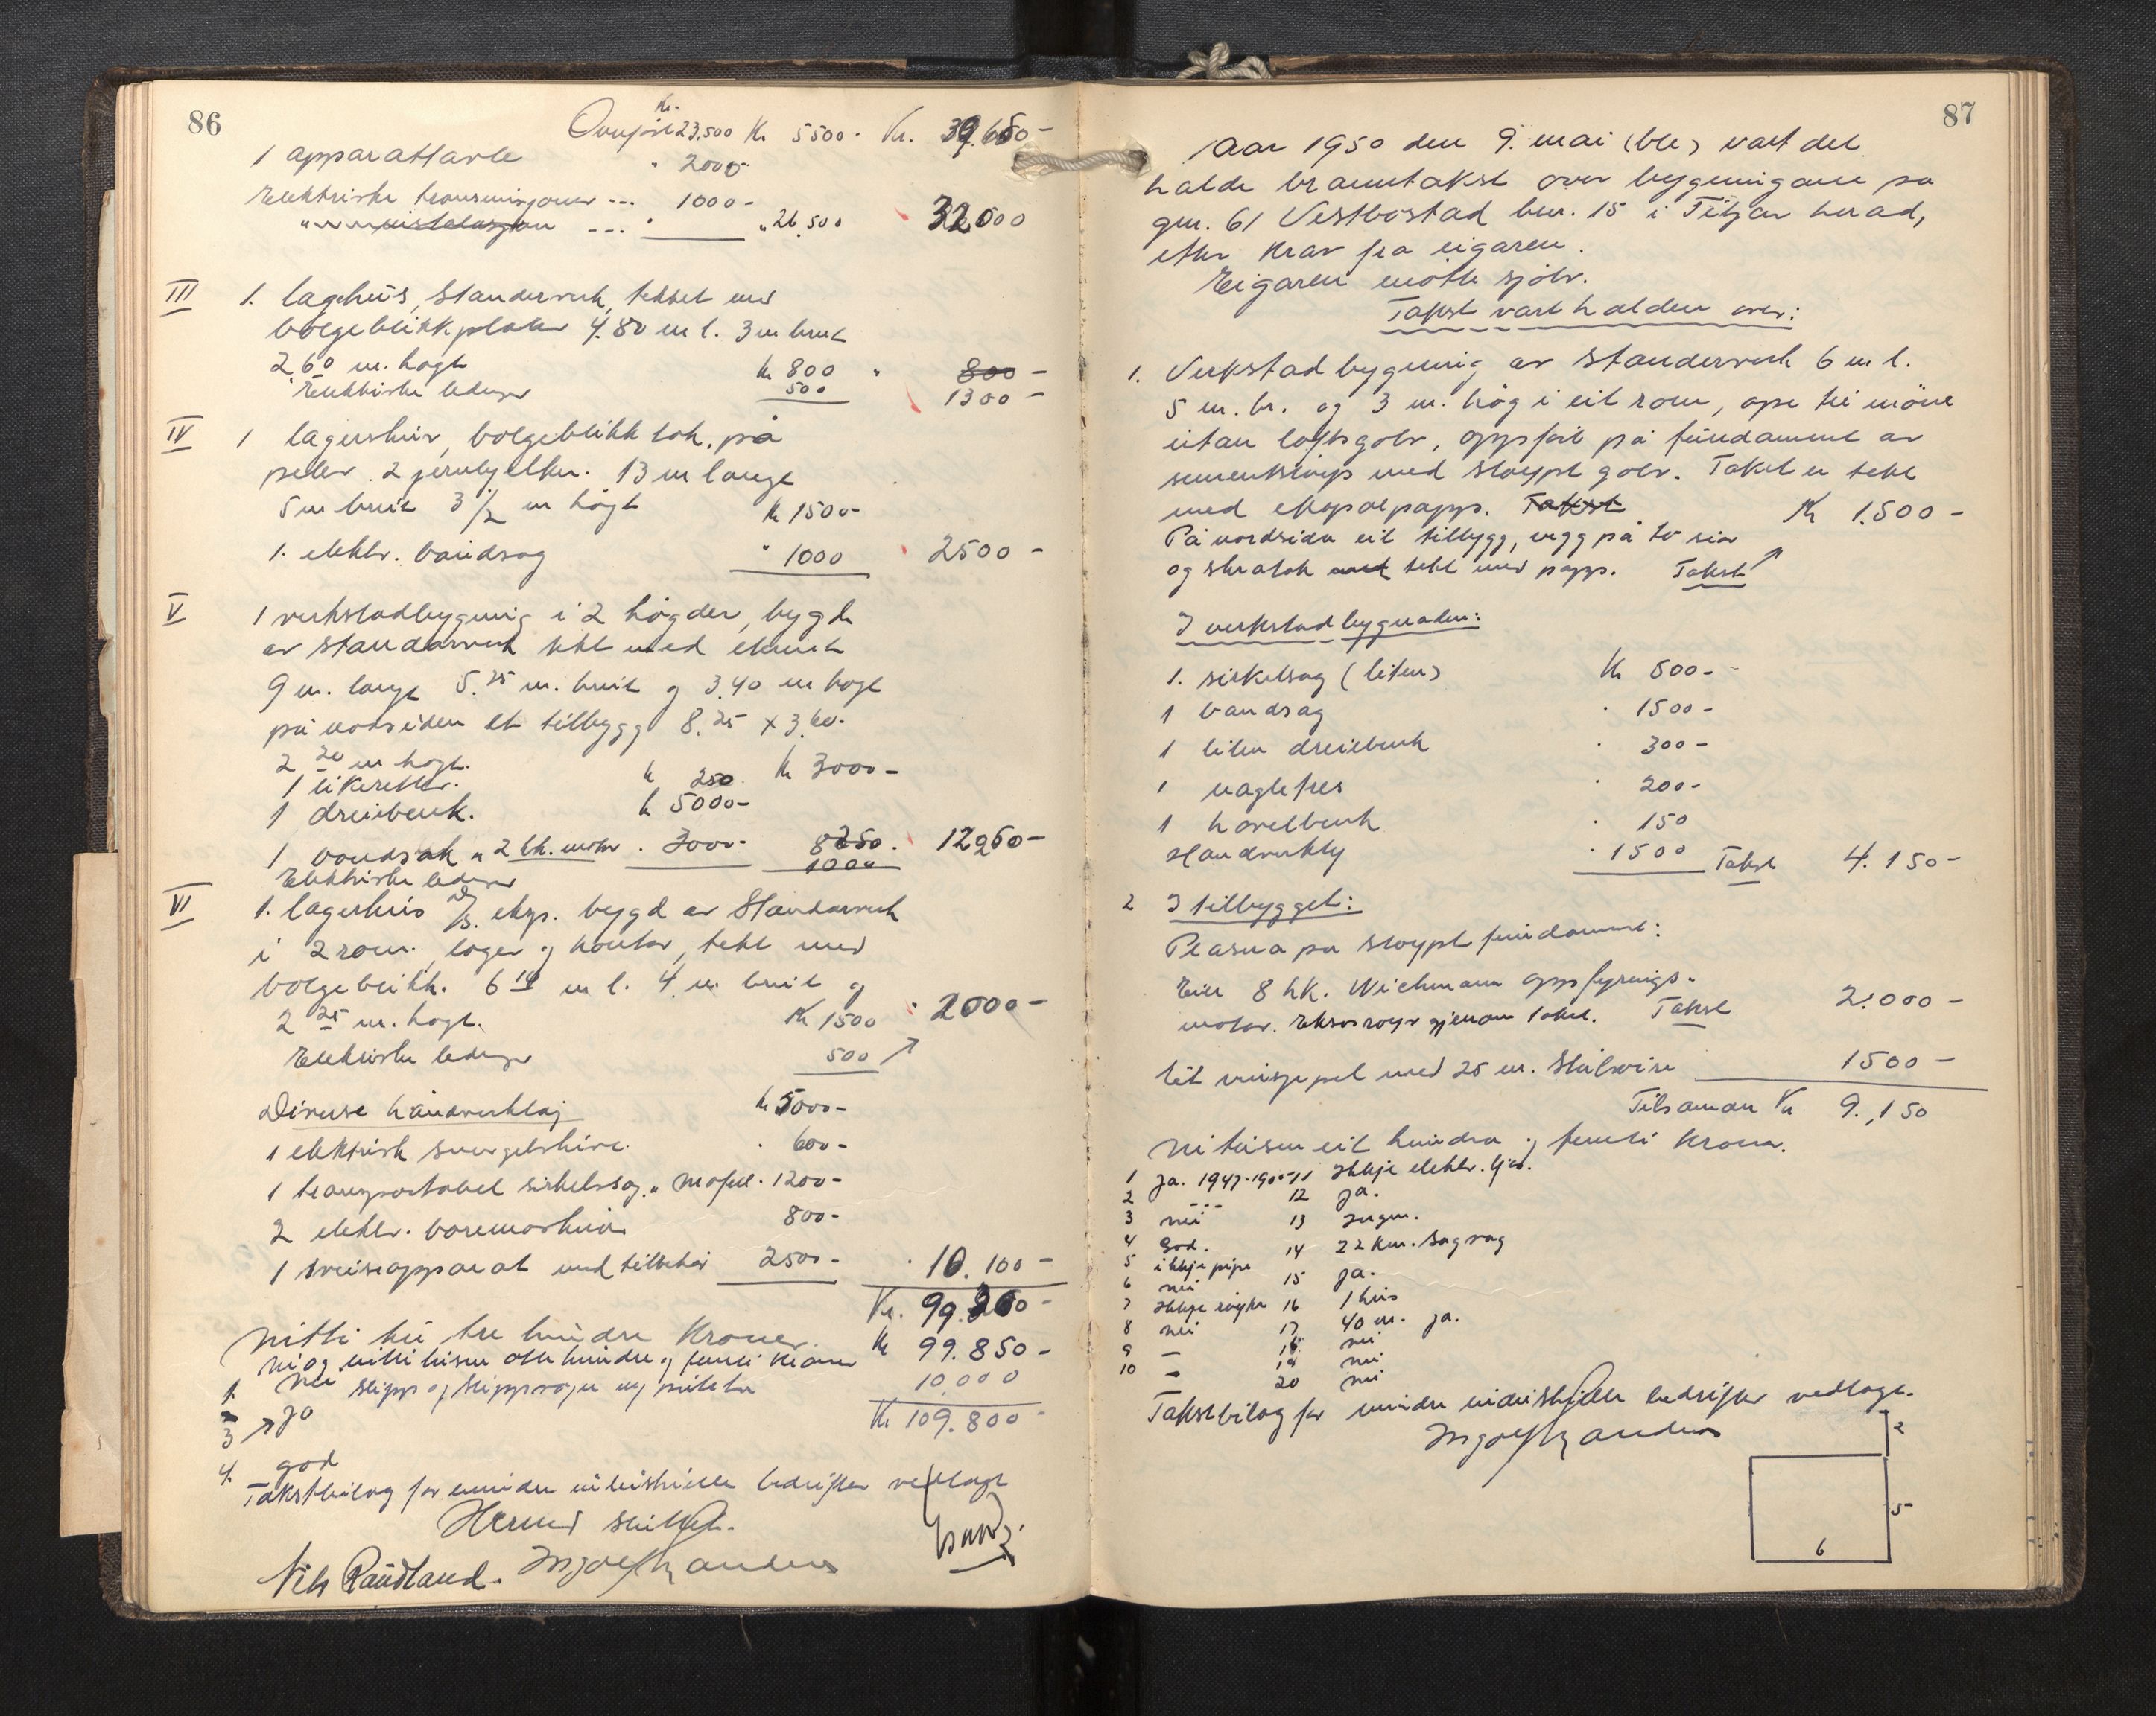 86
Kr.
Overført 23.500 Kr 5500- Kr. 39.650-
1 apparattavle " 2000-
Elektriske transmisjoner --- 1000-
installasjon --- " 26.500 32000
III 1. lagehus, standerverk, tekket med
bølgeblikkplater 4.80 m l. 3 m breit
2,60 m. høgt Kr 800 " 800-
Elektriske ledninger 500 1300-
IV 1 lagershus, bølgeblikk tak, på
peler. 2 jernbjelker. 13 m lange
5 m breit 3 1/2 m høgt Kr 1500-
1. elektr. bandsag " 1000 2500-
V 1 verkstadbygning i 2 høgder, bygd
av standarverk tekt med eternit
9 m. langt 5.25 m. breit og 3.40 m høgt
på nordsiden et tilbygg 8.25 x 3.60.
2 20 m høgt. Kr 3000-
1 likeretter. k 250
1 dreiebenk. k 5000-
1 bandsak " 2 hk. motor . 3000- 8250. 12250-
Elektriske ledninger 1000
VI 1. lagerhus eksp. bygd av Standarverk
i 2 rom. lager og kontor, tekt med
bølgeblikk. 6 10 m l. 4 m breit og
2 25 m. høgt. Kr 1500 " 2000-
Elektriske ledninger 500
Diverse håndverktøj Kr 5000-
1 elektrisk smergelskive. " 600-
1 transportabel sirkelsag " Mafell . 1200-
2 elektr. boremaskiner 800-
1 sveiseapparat med tilbehør 2500- . 10.100-
Kr. 99.300-
Nitti ni tre hundre Kroner. Kr 99.850-
Ni og nitti tusen otte hundre og femti kroner
1. nei slipp og slippvogn og 10.000
3 ja Kr 109.800-
4. god
Takstbilag for mindre industrielle bedrifter vedlagt
Nils Raudland.
87
Aar 1950 den 9. mai (ble) vart det
halde branntakst over bygningane på
gnr. 61 Vestbøstad bnr. 15 i Fitjar herad,
etter krav fra eigaren.
Eigaren møtte sjølv.
Takst vart halden over:
1. Verkstadbygning av standerverk 6 m l.
5 m. br. og 3 m. høg i eit rom, ope til møne
utan loftsgolv, oppført på fundament av
sementstøyp med støypt golv. Taket er tekt
med papp. Takst Kr 1.500-
På nordsida eit tilbygg, vegg på to sider
og skratak med tekt med papp. Takst
I verkstadbygnaden:
1. sirkelsag (liten) Kr 500-
1 bandsag . 1500-
1 liten dreiebenk . 300-
1 naglefres . 200-
1 høvelbenk . 150
Handverkty . 1500 Takst 4.150-
2 I tilbygget:
Plasera på støypt fundament:
Ein 8 hk. Wichmann oppfyrings-
motor. Eksosrøyr gjenom taket. Takst 2.000-
Eit vinsjespel med 25 m. Stålwire 1500-
Tilsaman Kr 9.150
Nitusen eit hundra og femti kroner.
1 Ja. 1947-1950 11 Ikkje elektr. ljos.
2 --- 12 ja.
3 nei 13 Ingen.
4 God. 14 22 km. Sagvåg
5 ikkje pipe 15 ja.
6 nei 16 1 hus
7 Ikkje røykt 17 40 m. ja.
8 nei 18 nei
9 - 19 nei
10 - 20 nei
Takstbilag for mindre industrielle bedrifter vedlagt.
2
5
6